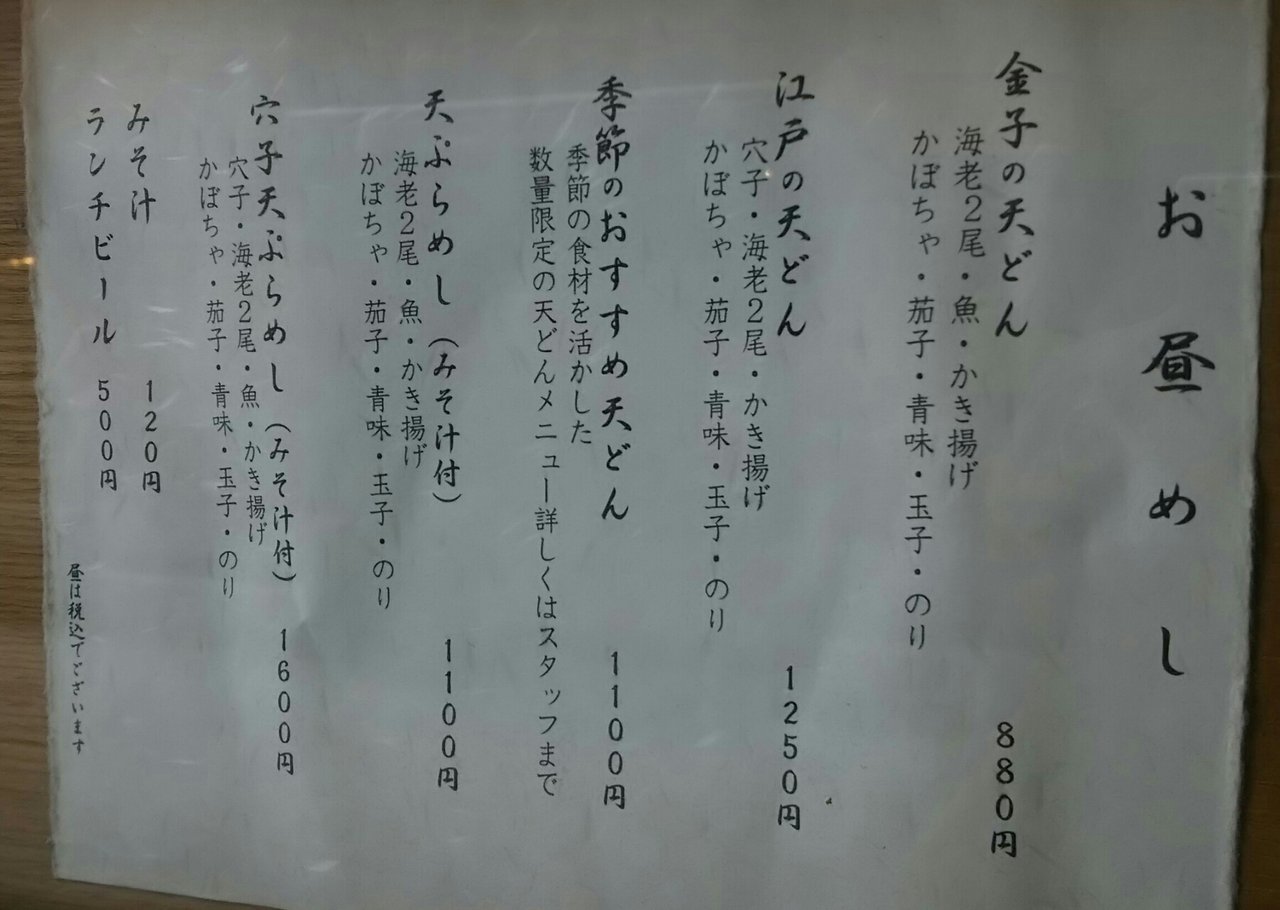 お昼めし
金子の天どん 880円
海老2尾・魚・かき揚げ
かぼちゃ・茄子・青味・玉子・のり
江戸の天どん 1250円
穴子・海老2尾・かき揚げ
かぼちゃ・茄子・青味・玉子・のり
季節のおすすめ天どん 1100円
季節の食材を活かした
数量限定の天どんメニュー詳しくはスタッフまで
天ぷらめし(みそ汁付) 1100円
海老2尾・魚・かき揚げ
かぼちゃ・茄子・青味・玉子・のり
穴子天ぷらめし(みそ汁付) 1600円
穴子・海老2尾・魚・かき揚げ
かぼちゃ・茄子・青味・玉子・のり
みそ汁 120円
ランチビール 500円
昼は税込でございます